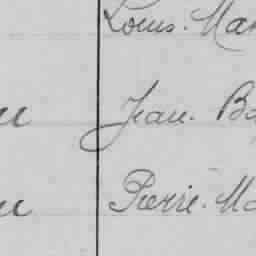 Louis. Mar
Jean. Ba
Pierre. Ma